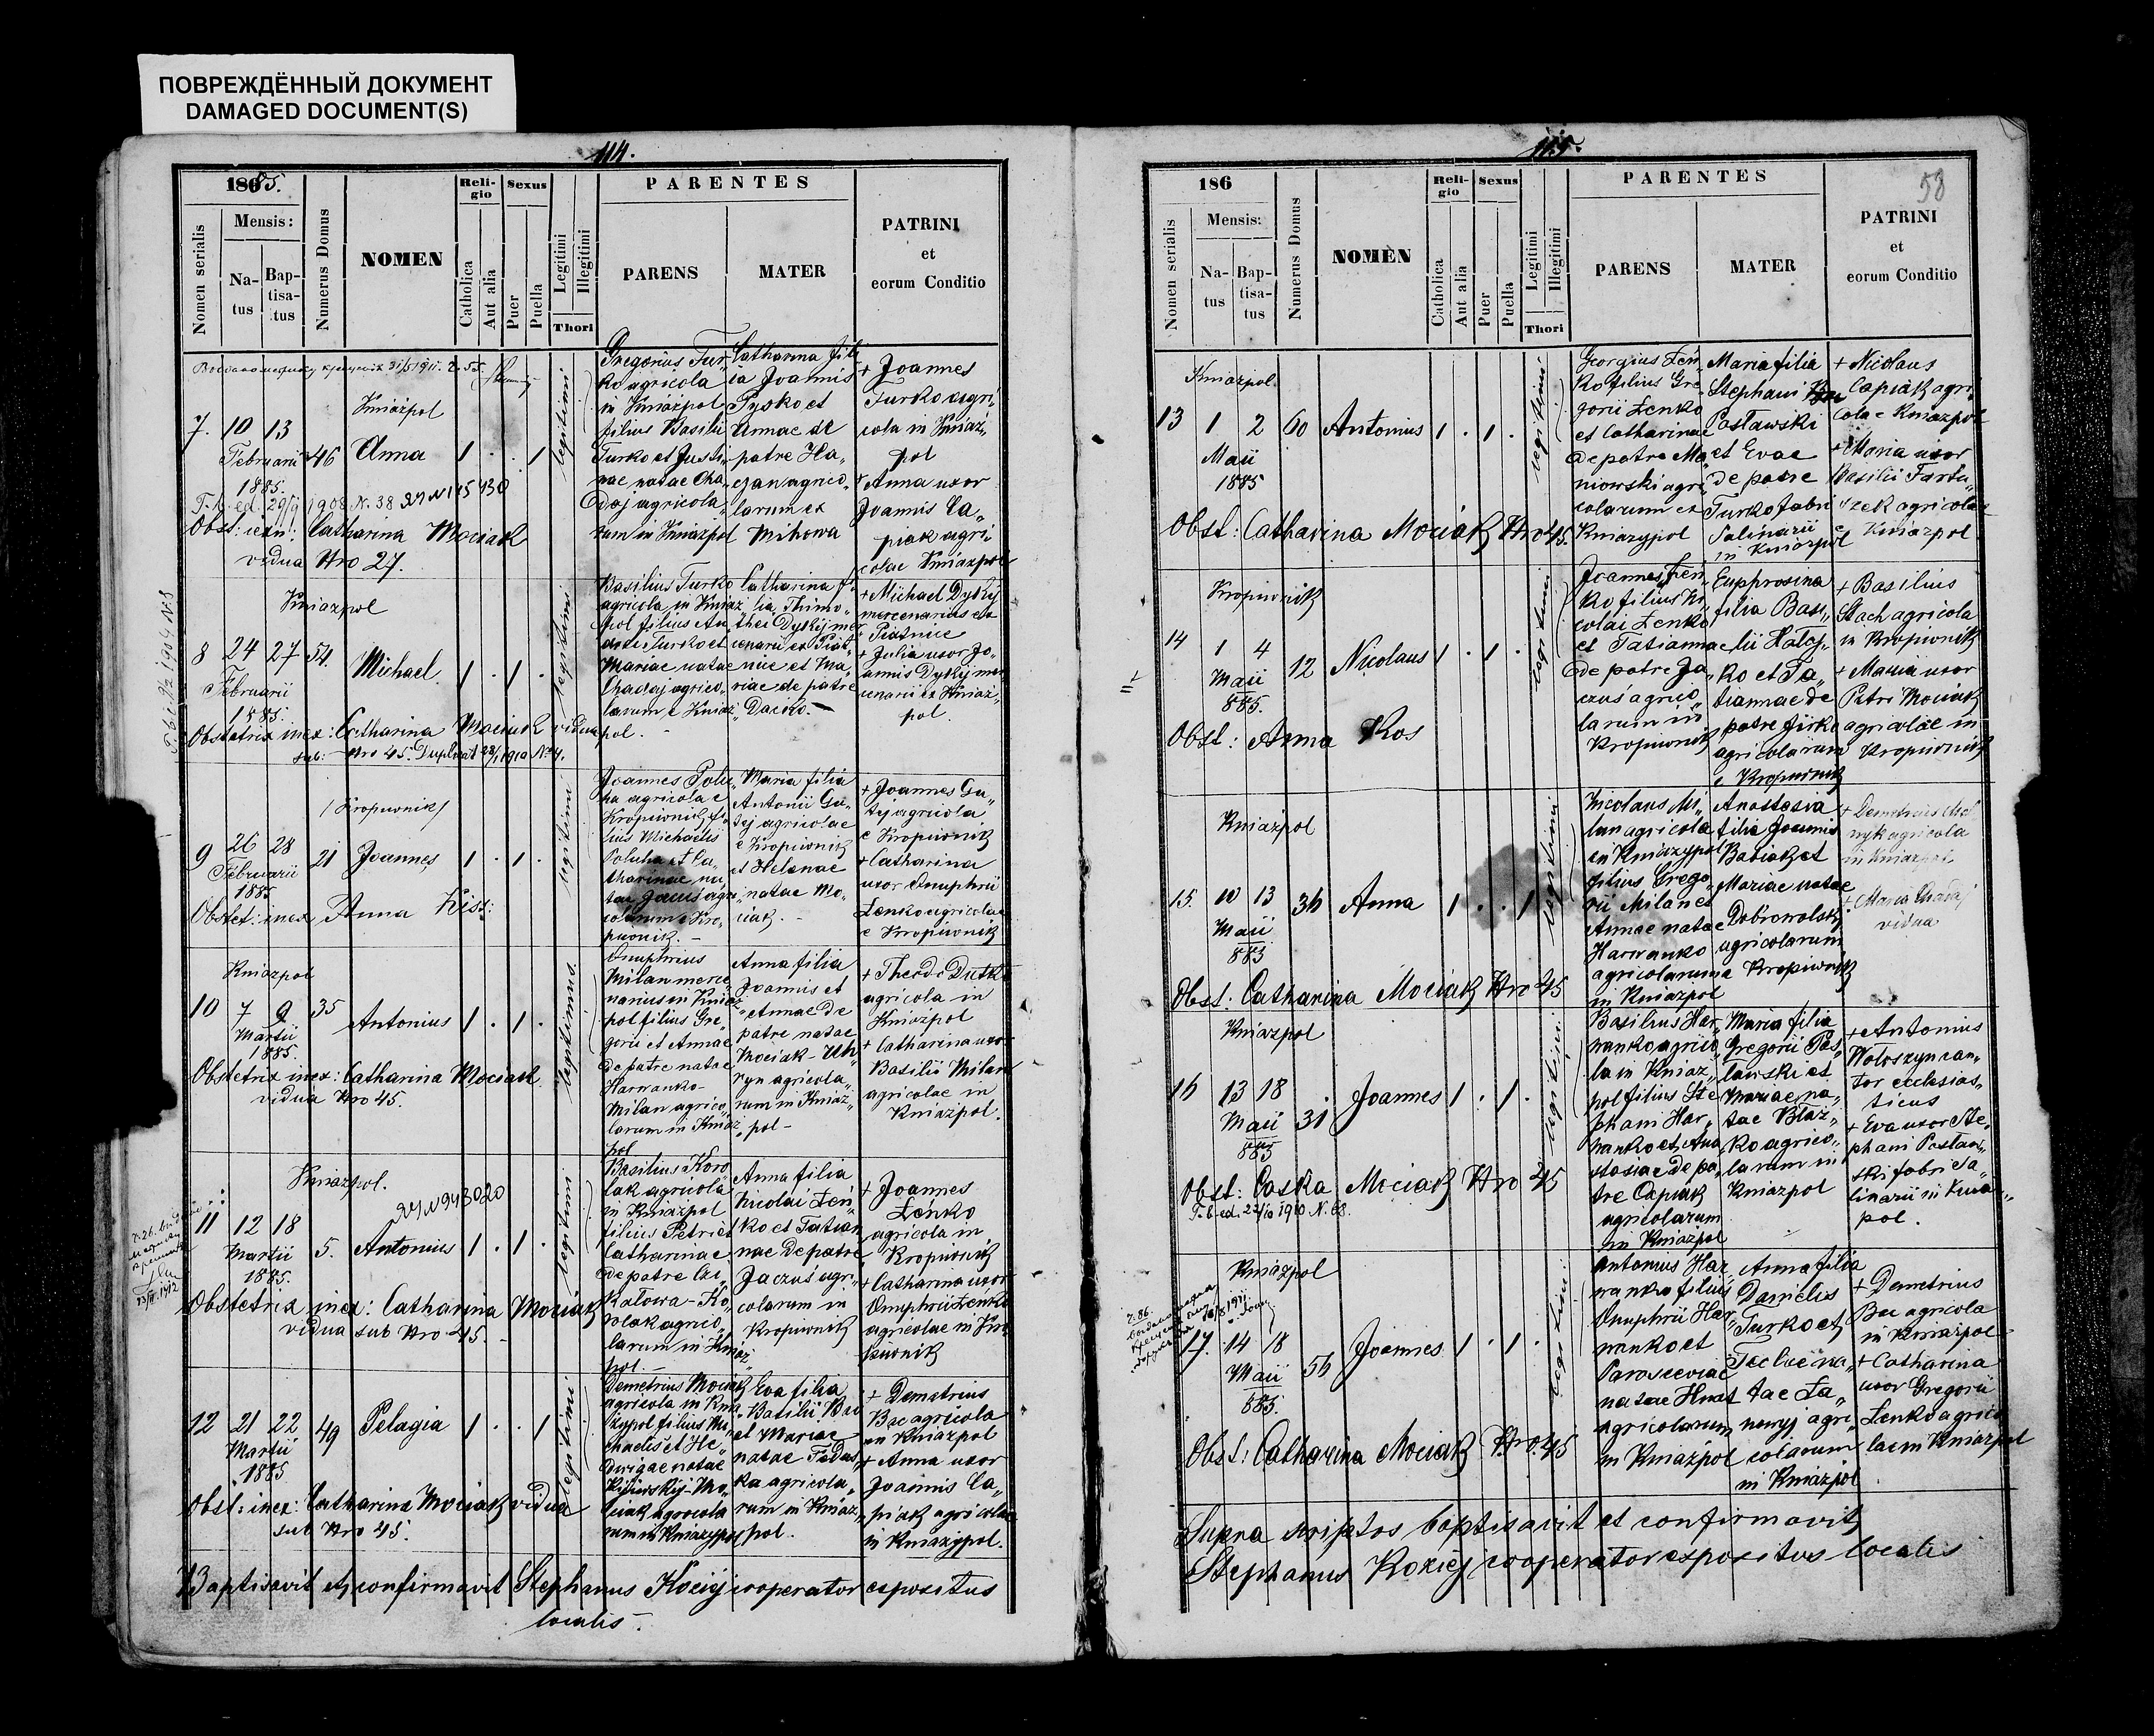 ПОВРЕЖДЁННЫЙ ДОКУМЕНТ
DAMAGED DOCUMENT(S)
114.
1885.
Nomen serialis
Mensis:
Natus
Baptisatus
Numerus Domus
NOMEN
Religio
Catholica
Aut alia
Sexus
Puer
Puella
Legitimi
Illegitimi
Thori
PARENTES
PARENS
MATER
PATRINI
et
eorum Conditio
Kniażpol
7. 10 13 Februarii 1885. 46 Anna 1 . . 1 legitimi
Gregorius Tur„
ko agricola
in Kniażpol
filius Basilii
Turko et Justi„
nae natae Cha„
daj agricola„
rum in Kniażpol
Catharina fili
ia Joannis
Pysko et
Annae de
patre Ha„
agrico„
larum ex
+ Joannes
Turko agri„
cola in Kniaż„
pol
+ Anna uxor
Joannis Ca„
piak agri
colae Kniażpol
1908 N. 38
Obst: inex: Catharina Mociak
vidua Nro 27.
Kniazpol
8 24 27 Februarii 1885. 54. Michael 1 . 1 . legitimi
Basilius Turko
agricola in Kniaz„
pol filius
Turko et
Mariae natae
Chadaj agrico„
larum e Kniaz„
pol.
Catharina f„
lia Thimo„
thei Dykyj mer
cenarii ex Piąt„
nice et Ma„
riae de patre
+ Michael Dykyj
mercenarius ex
Piątnice
+ Julia uxor Jo„
annis Dykyj mer
cenarii ex Kniaz„
pol.
Obstetrix inex: Catharina Mociak vidua
sub: Nro 45. Duplicat 1910
/Kropiwnik/
9 26 28 Februarii 1885 21 Joannes 1 . 1 . legitimi
Joannes Polu„
ha agricola e
Kropiwnik fi„
lius Michaelis
Poluha et Ca„
tharinae na„
tae agri
colarum e Kro„
piwnik.
Maria filia
Antonii Ga„
tej agricolae
e Kropiwnik
et Helenae
natae Mo„
ciak.
+ Joannes Ga„
tej agricola
e Kropiwnik
+ Catharina
uxor Onuphrii
Łenko agricolae
e Kropiwnik
Obstet: inex Anna
Kniazpol
10 7 9 Martii 1885. 35 Antonius 1 . 1 . legitimus
Onuphrius
Milan merce
narius in Kniaz„
pol filius Gre„
gorii et Annae
de patre natae
Harwanko-
Milan agrico„
larum in Kniaz„
pol
Anna filia
Joannis et
Annae de
patre natae
Mociak
agricola„
rum in Kniaz„
pol
+ Theodr
agricola in
Kniazpol
+ Catharina uxor
Basilii Milan
agricolae in
Kniazpol.
Obstetrix inex: Catharina Mociak.
vidua Nro 45.
Kniażpol.
N 943020
11 12 18 Martii 1885. 5. Antonius 1 . 1 . legitimi
Basilius Koro
lak agricola
in Kniazpol
filius Petri et
Catharinae
de patre
Ko„
rolak agrico„
larum in Kniaz„
pol.
Anna filia
Nicolai Łeń„
ko et Tatian
nae de patre
Jaczuś agri„
colarum in
Kropiwnik
+ Joannes
Łenko
agricola in
Kropiwnik
+ Catharina uxor
Onuphrii Łenko
agricolae in Kro
piwnik
Obstetrix inex: Catharina Mociak
vidua sub Nro 45.
12 21 22 Martii 1885 49 Pelagia 1 . . 1 legitimi
Demetrius Mociak
agricola in Knia„
zypol filius Mi„
chaelis et He„
dwigae natae
Mo„
ciak agricola
rum in Kniazypol
Eva filia
Basilii Bac
et Mariae
natae
agricola„
rum in Kniaz„
pol.
+ Demetrius
Bac agricola
in Kniazpol
+ Anna uxor
Joannis Ca„
piak agricolae
in Kniazypol.
Obst: inex: Catharina Mociak vidua
sub Nro 45.
Baptisavit et confirmavit Stephanus Koziej cooperator expositus
localis.
115.
58
186
Nomen serialis
Mensis:
Natus
Baptisatus
Numerus Domus
NOMEN
Religio
Catholica
Aut alia
Sexus
Puer
Puella
Legitimi
Illegitimi
Thori
PARENTES
PARENS
MATER
PATRINI
et
eorum Conditio
Kniazpol.
13 1 2 Maii 1885 60 Antonius 1 . 1 . legitimi
Georgius Łen„
ko filius Gre„
gorii Łenko
et Catharinae
de patre Ma„
niowski agri„
colarum ex
Kniazypol
Maria filia
Stephani
Postawski
et Evae
de patre
Turko fabri
Salinarii
in Kniazpol
+ Nicolaus
Capiak agri„
cola e Kniazpol
+ Maria uxor
Basilii Fartu„
szek agricolae
e Kniazpol
Obst: Catharina Mociak Nro 45.
Kropiwnik
14 1 4 Maii 885. 12 Nicolaus 1 . 1 . legitimi
Joannes Łen„
ko filius Ni„
colai Łenko
et Tatianna
de patre Ja„
czuś agrico„
larum in
Kropiwnik
Euphrosina
filia Basi„
lii Hatoj„
ko et Ta„
tiannae de
patre Jirko
agricolarum
e Kropiwnik
+ Basilius
Stach agricola
in Kropiwnik
+ Maria uxor
Petri Mociak
agricolae in
Kropiwnik
Obst: Anna Kos
Kniazpol
15 10 13 Maii 885 36 Anna 1 . . 1 legitimi
Nicolaus Mi„
lan agricola
in Kniazypol
filius Grego„
rii Milan et
Annae natae
Harwanko
agricolarum
in Kniazpol
Anastasia
filia Joannis
Babiak et
Mariae natae
Dobrowolski
agricolarum
e Kropiwnik
+ Demetrius
agricola
in Kniazpol.
+ Maria Chadaj
vidua
Obst: Catharina Mociak Nro 45
Kniazpol
16 13 18 Maii 885 31 Joannes 1 . 1 . legitimi
Basilius Har„
wanko agrico„
la in Kniaz„
pol filius Ste
phani Har„
wanko et Ana„
stasiae de pa„
tre Capiak
agricolarum
in Kniazpol
Maria filia
Gregorii Pos„
lawski et
Mariae na„
tae Blaż„
ko agrico„
larum in
Kniazpol
+ Antonius
Wołoszyn can„
tor ecclesias„
ticus
+ Eva uxor Ste„
phani Postaw„
ski fabri Sa„
linarii in Kniaz„
pol.
Obst: Paska Mociak Nro 45
T. b. ed. 22/10 1910 N. 68.
Kniazpol
17. 14 18 Maii 885. 56 Joannes 1 . 1 . legitimi
Antonius Har„
wanko filius
Onuphrii Har„
wanko et
Parasceviae
natae Hnat
agricolarum
in Kniazpol
Anna filia
Danielis
Turko et
Teclae na„
tae Ła„
agri„
colarum
in Kniazpol
+ Demetrius
Bac agricola
in Kniazpol
+ Catharina
uxor Gregorii
Łenko agrico
lae in Kniazpol
Obst: Catharina Mociak Nro. 45
Supra scriptos baptisavit et confirmavit
Stephanus Koziej cooperator expositus localis